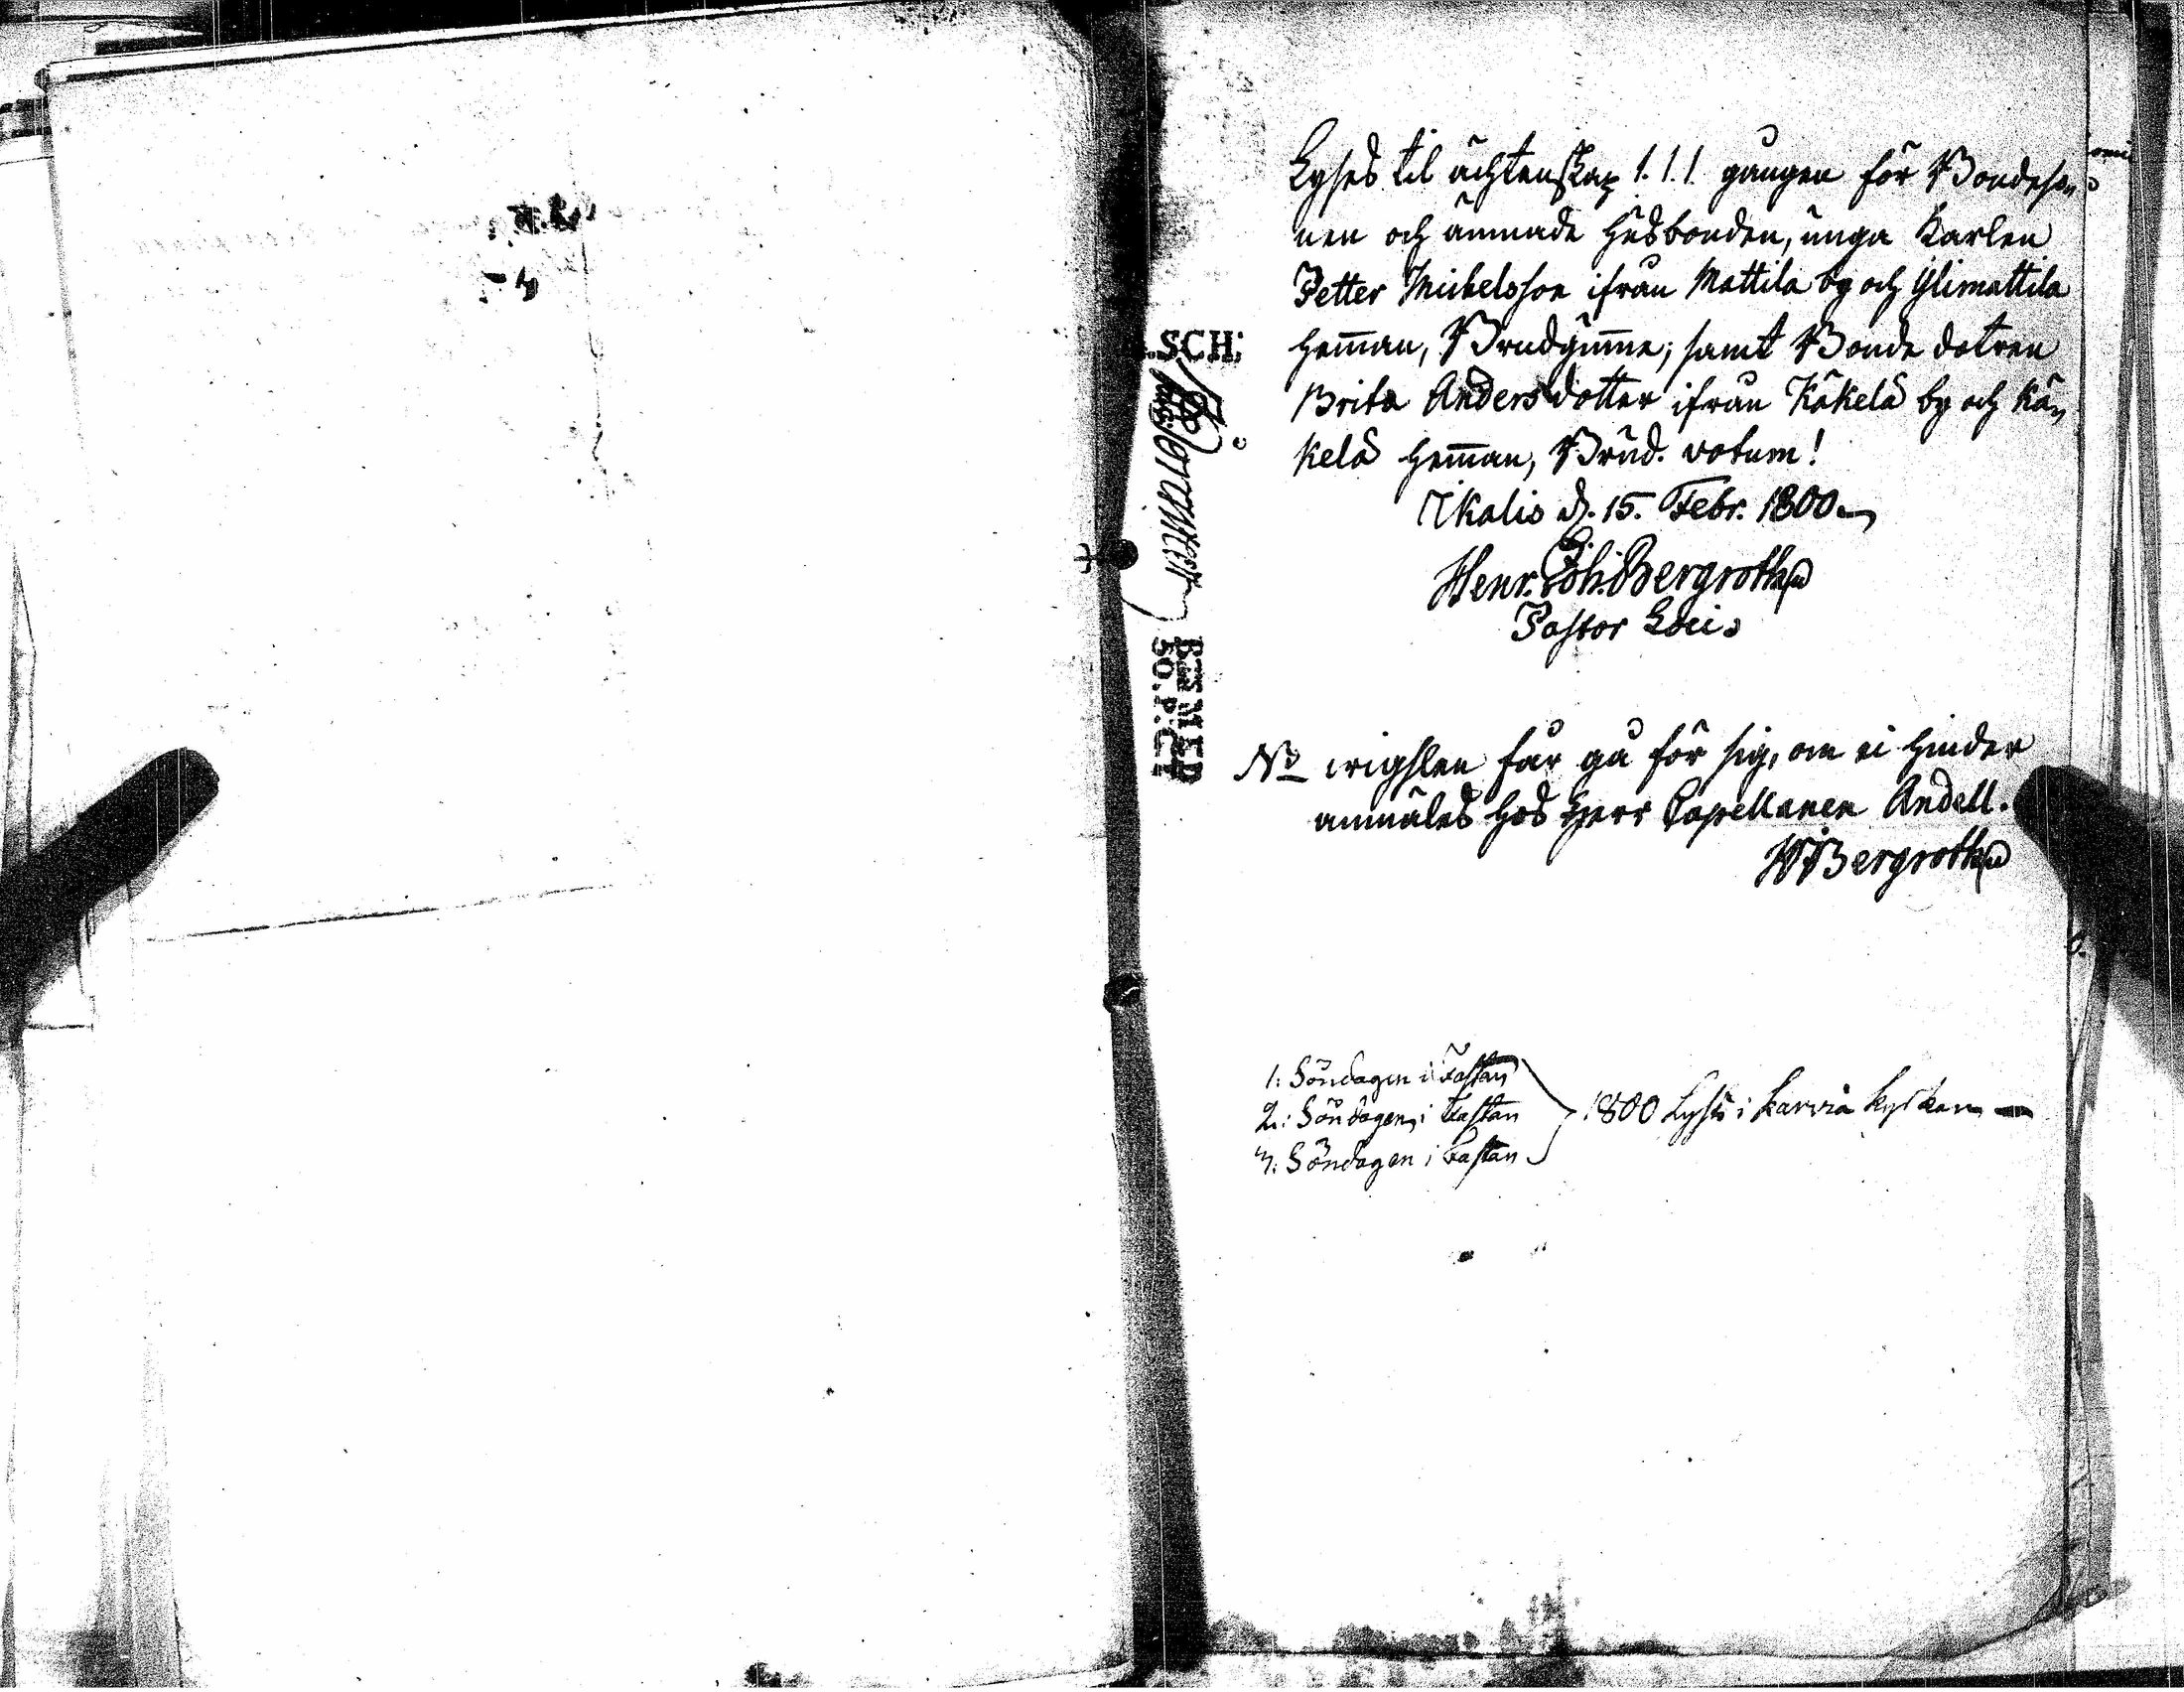 Lyses til ächtenskap 1.1.1. gången för Bondeso-
nen och ämnade Husbonden, unga Karlen
Petter Michelsson ifrån Mattila by och Ylimattila
Hem̄an, Brudgum̄e; samt Bonde dotren
Brita Andersdotter ifrån Käkelä by och Kä-
kelä Hem̄an, Brud. votum!
Ikalis d. 15. Febr. 1800.
Henr. Joh. Bergroth
Pastor Loci
.SCH;
BTS MED
50. P. CT
No wigslen får gå för sig, om ei hinder
anmäles hos Herr Capellanen Andell.
HBergroth
1: Söndagen i Fastan
2: Söndagen i Fastan
3: Söndagen i Fastan
1800 Lyst i Karvia kyrkan